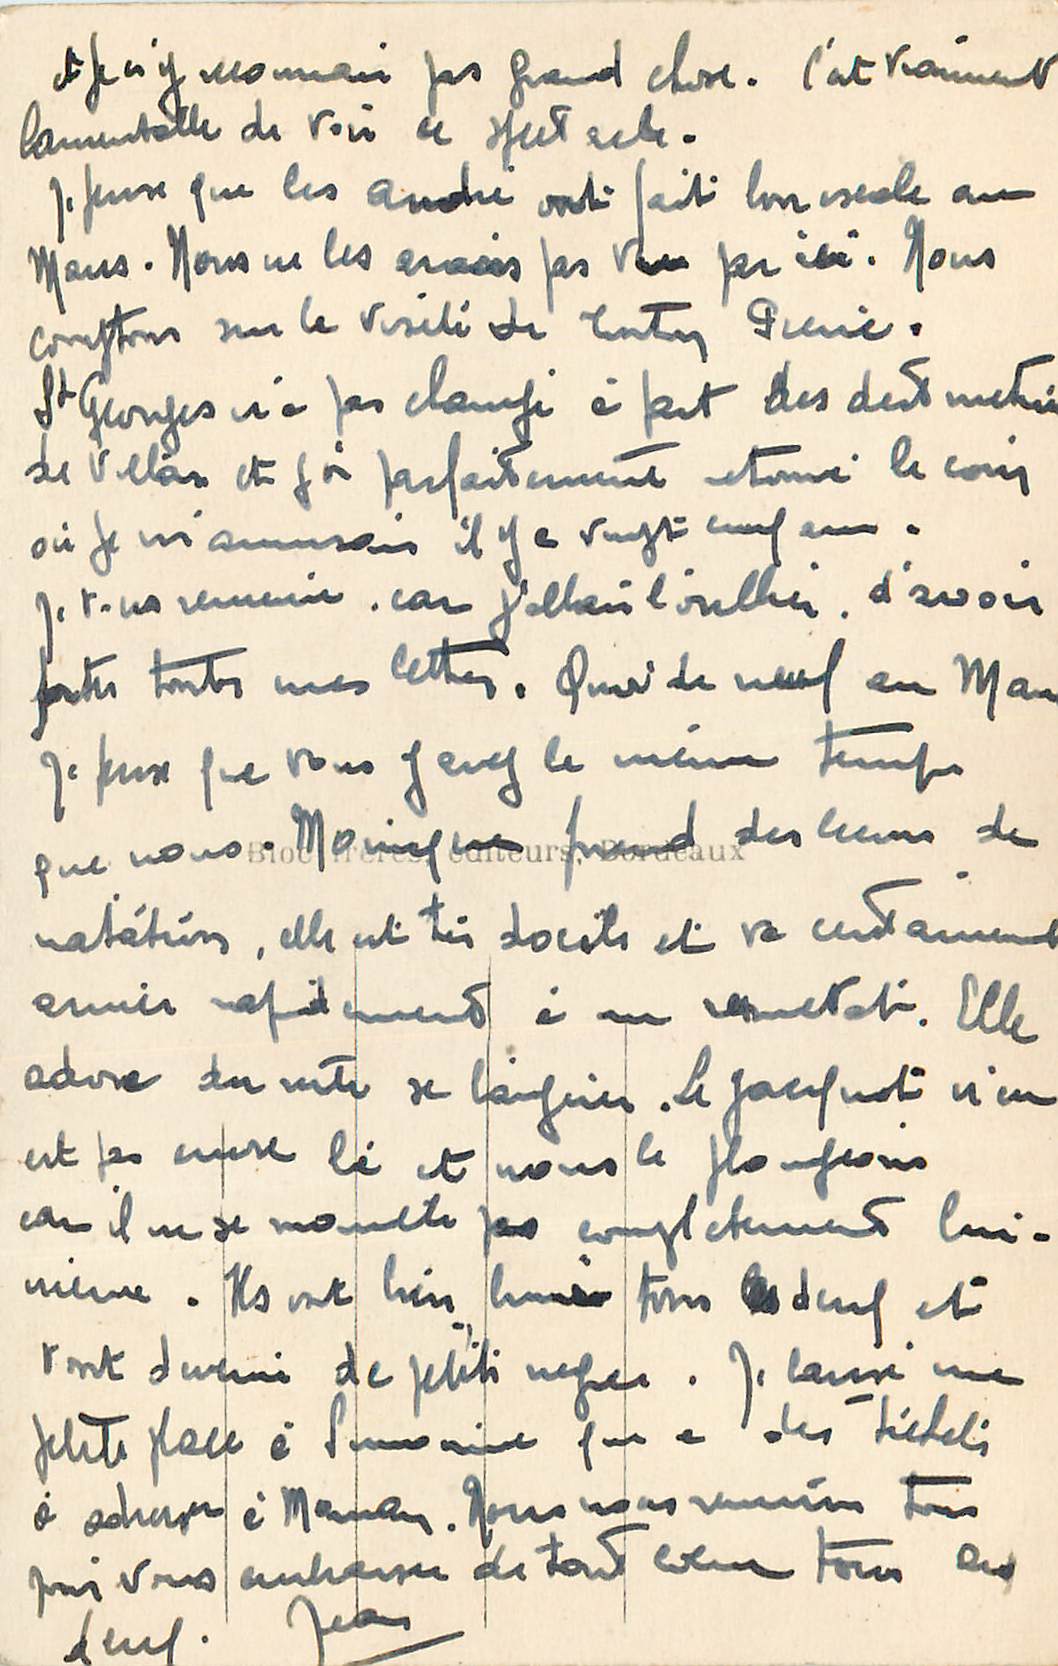 et je n'y reconnais pas grand chose. C'est vraiment
lamentable de voir ce spectacle.
Je pense que les André ont fait bonne escale au
Mans. Nous ne les avons pas vus par ici. Nous
comptons sur la visite de Pierre.
St Georges n'a pas changé à part des destructions
de villas et j'ai parfaitement retrouvé le coin
où je m'amusais il y a vingt cinq ans.
Je vous remercie, car j'allais l'oublier, d'avoir
toutes mes lettres. Quoi de neuf au Mans
Je pense que vous y avez le même temps
que nous. Monique prend des leçons de
Bloc Frères, éditeurs, Bordeaux
natation, elle est très docile et va certainement
arriver rapidement à un resultat. Elle
adore du reste se baigner. Le Jacquot n'en
est pas encore là et nous le plongeons
car il ne se mouille pas completement lui-
même. Ils ont bien bruni tous les deux et
vont devenir de petits negres. Je laisse une
petite place à Simonine qui a des tickets
à Maman. Nous nous réunissons tous
pour vous embrasser de tout coeur tous les
deux. Jean